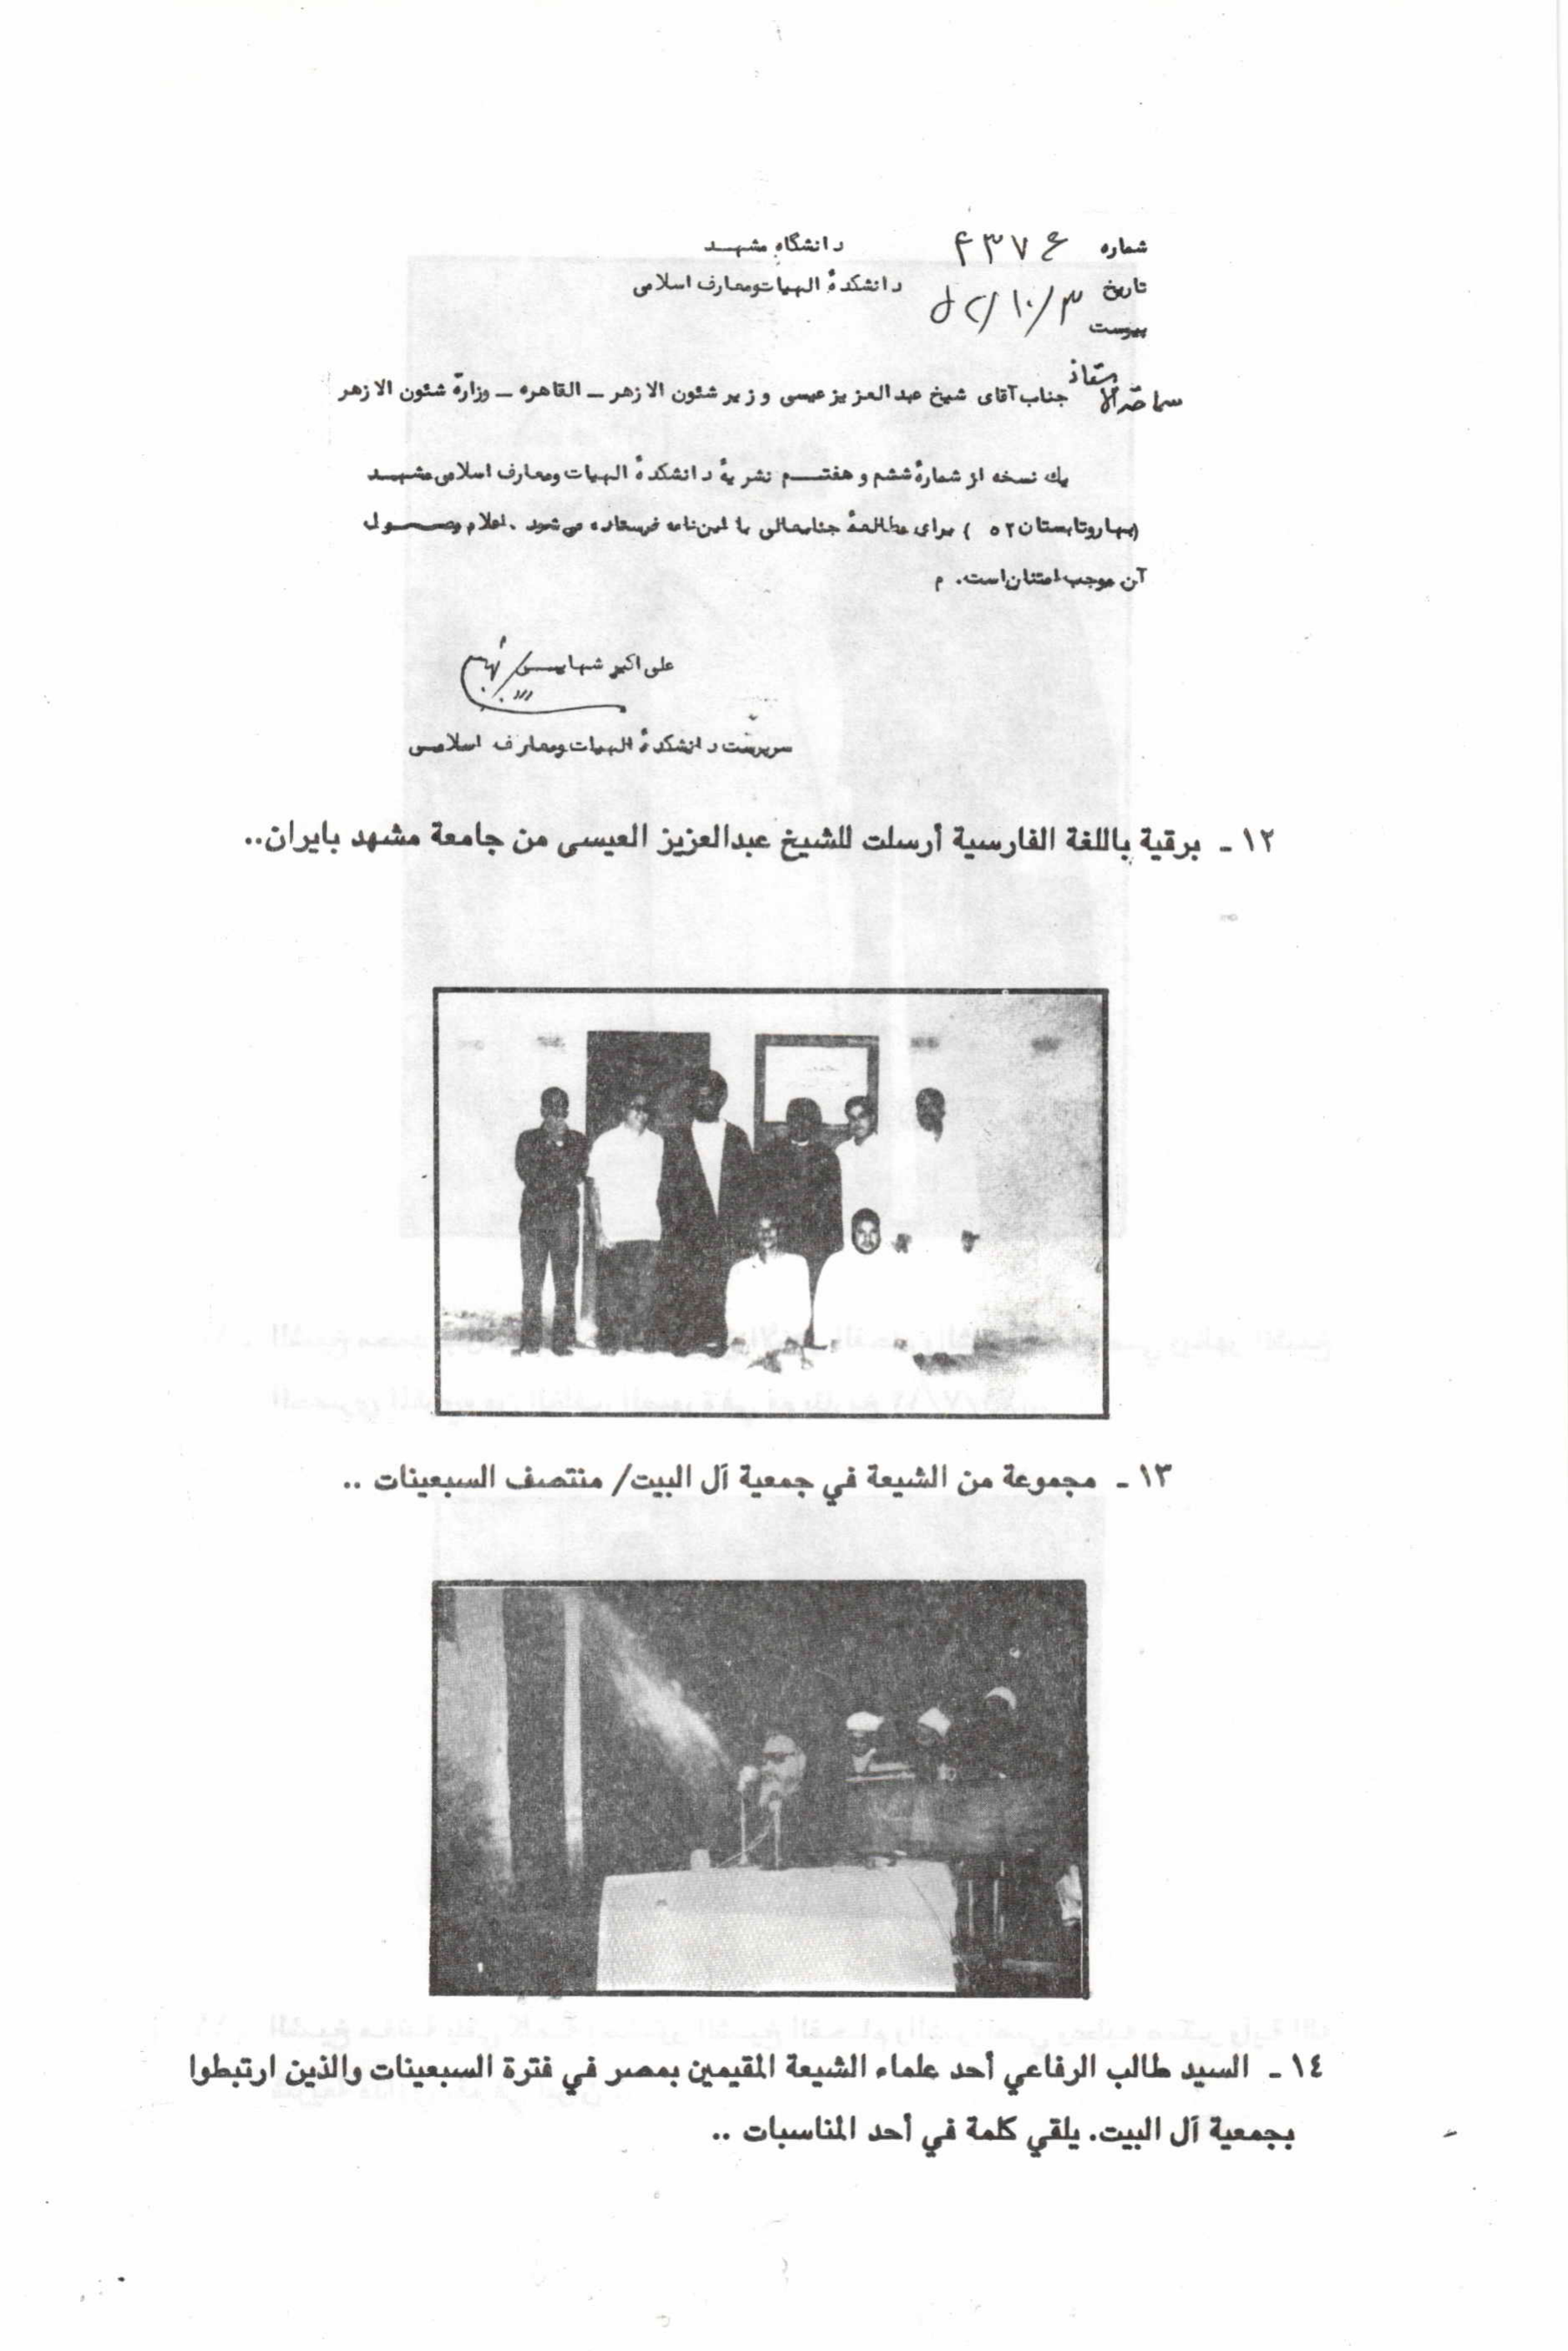 دانشگاه مشهد
دانشکدهٔ الهیات ومعارف اسلامی
شماره ۴۳۷۶
تاریخ ۵۲/۱۰/۳
پیوست
سماحة الاستاذ جناب آقای شیخ عبدالعزیز عیسی وزیر شئون الازهر ـ القاهره ـ وزارة شئون الازهر
یك نسخه از شمارهٔ ششم و هفتم نشریهٔ دانشکدهٔ الهیات ومعارف اسلامی مشهد
(بهاروتابستان ۵۲ ) برای مطالعهٔ جنابعالی با این نامه فرستاده می شود . اعلام وصول
آن موجب امتنان است. م
علی اکبر شهابی
سرپرست دانشکدهٔ الهیات ومعارف اسلامی
١٢ ـ برقية باللغة الفارسية أرسلت للشيخ عبدالعزيز العيسى من جامعة مشهد بايران..
١٣ ـ مجموعة من الشيعة في جمعية آل البيت/ منتصف السبعينات ..
١٤ ـ السيد طالب الرفاعي أحد علماء الشيعة المقيمين بمصر في فترة السبعينات والذين ارتبطوا
بجمعية آل البيت. يلقي كلمة في أحد المناسبات ..